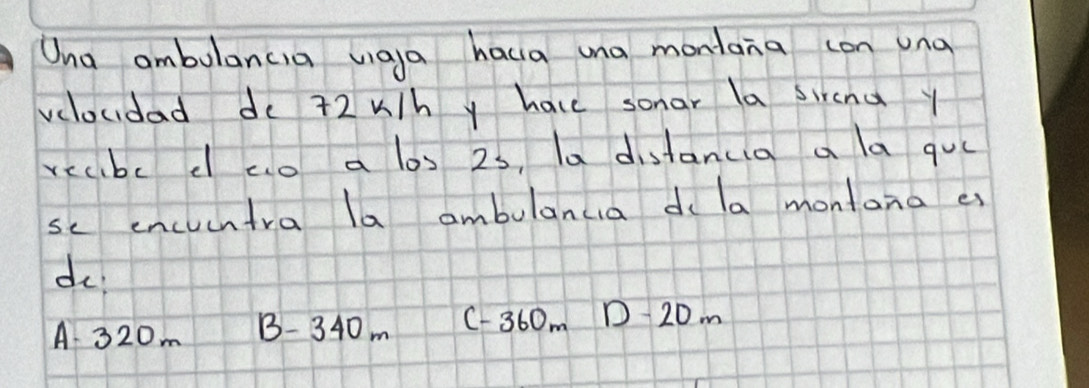 Una ambulancia viaja hacia una montaña con una
velocidad de 72 K/h y hace sonar la sirena y
recibe el eco a los 2s, la distancia a la que
se encuentra la ambulancia de la montaña es
de:
A- 320m B- 340m C- 360m D- 20m